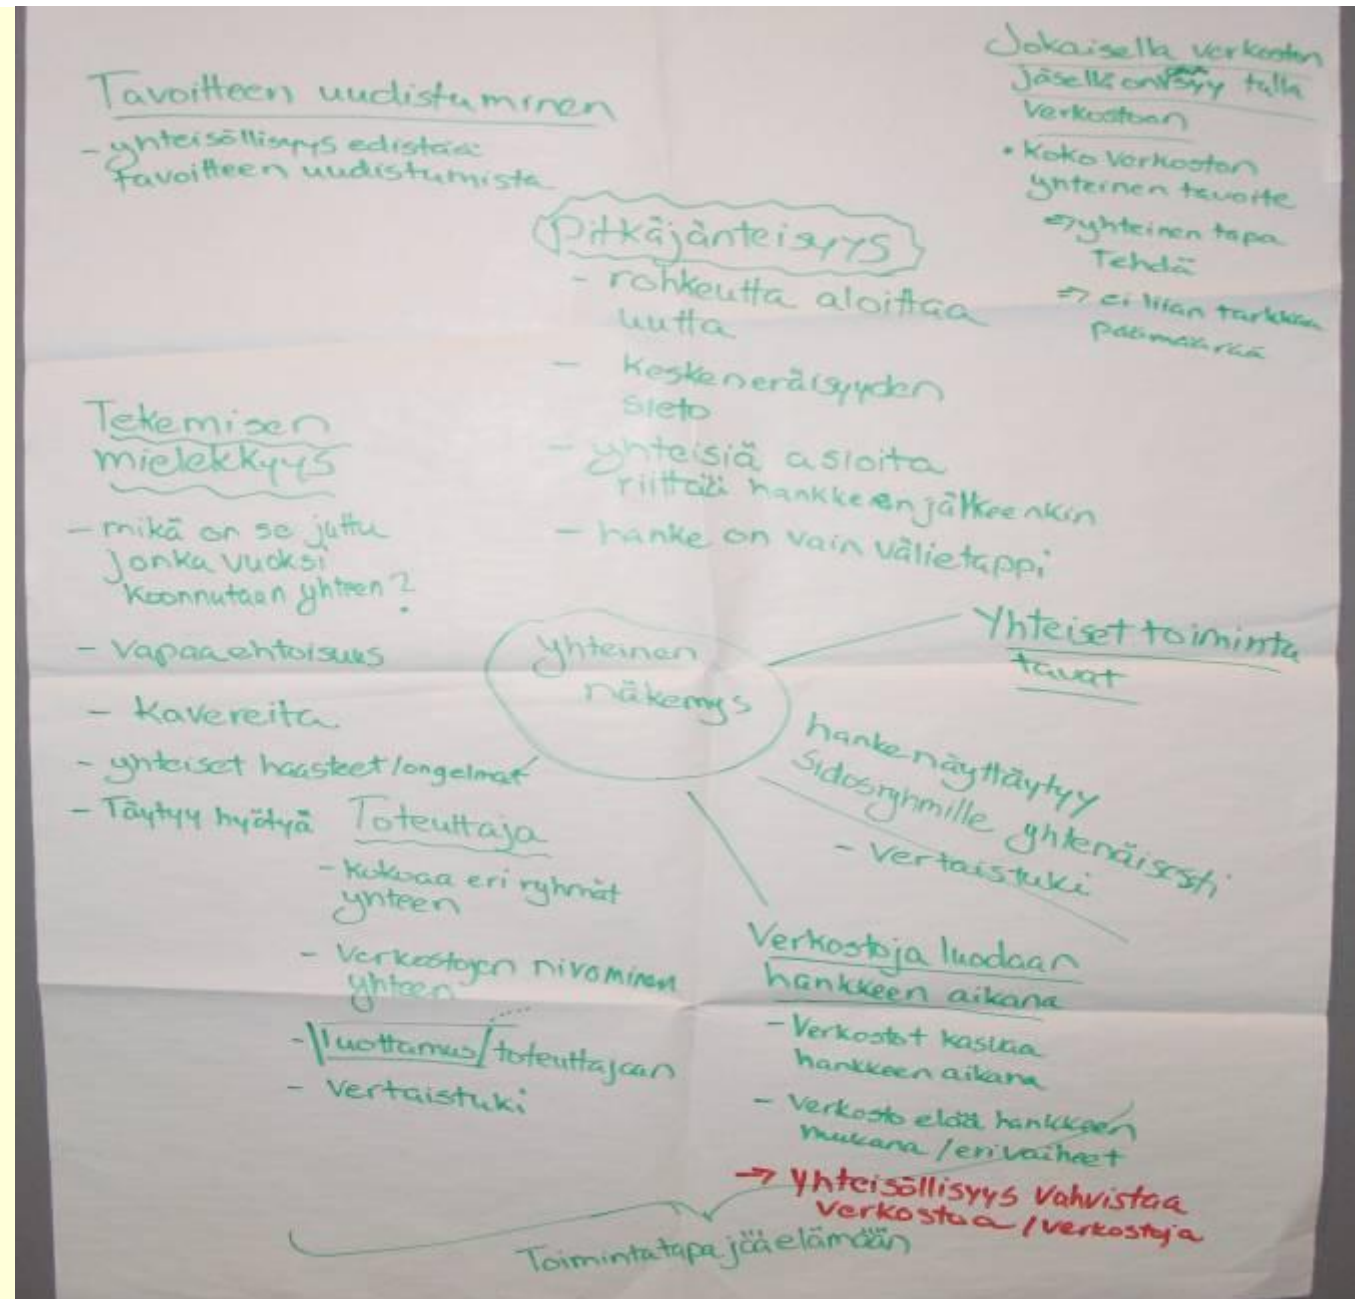 Tavoitteen uudistuminen
- yhteisöllisyys edistää
tavoitteen uudistumista
Jokaisella verkoston
jäsellä on syy tulla
verkostoon
• Koko verkoston
yhteinen tavoite
⇒ yhteinen tapa
Tehdä
⇒ ei liian tarkkaa
päämäärää
Pitkäjänteisyys
- rohkeutta aloittaa
uutta
- Keskeneräisyyden
sieto
- yhteisiä asioita
riittää hankkeen jälkeenkin
- hanke on vain välietappi
Tekemisen
mielekkyys
- mikä on se juttu
Jonka vuoksi
koonnutaan yhteen?
- Vapaaehtoisuus
- Kavereita
- yhteiset haasteet/ongelmat
- Täytyy hyötyä
yhteinen
näkemys
Yhteiset toiminta
tavat
hanke näyttäytyy
Sidosryhmille yhtenäisesti
- Vertaistuki
Toteuttaja
- kokoaa eri ryhmät
yhteen
- Verkostojen nivominen
yhteen
- luottamus toteuttajaan
- Vertaistuki
Verkostoja luodaan
hankkeen aikana
- Verkostot kasvaa
hankkeen aikana
- Verkosto elää hankkeen
mukana / eri vaiheet
→ Yhteisöllisyys vahvistaa
verkostoa / verkostoja
Toimintatapa jää elämään